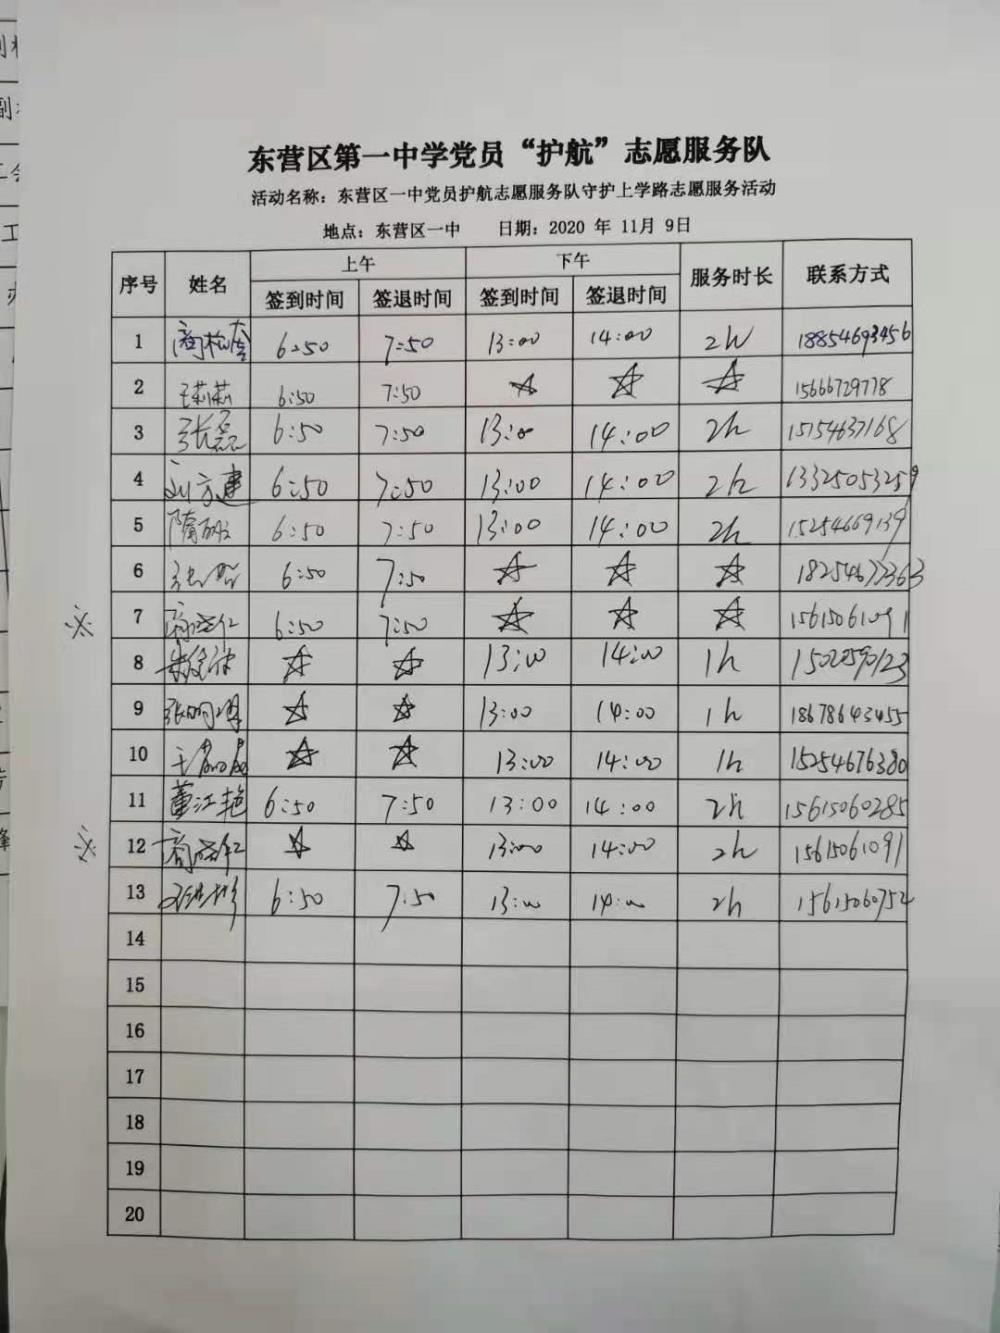 东营区第一中学党员“护航”志愿服务队
活动名称：东营区一中党员护航志愿服务队守护上学路志愿服务活动
地点：东营区一中 日期：2020 年 11月 9日
序号 姓名 上午 下午 服务时长 联系方式
签到时间 签退时间 签到时间 签退时间
1 6:50 7:50 13:00 14:00 2h 18854693456
2 王莉莉 6:50 7:50 ☆ ☆ ☆ 15666729778
3 张磊 6:50 7:50 13:00 14:00 2h 15154637168
4 刘方建 6:50 7:50 13:00 14:00 2h 13325053259
5 6:50 7:50 13:00 14:00 2h 15254669139
6 6:50 7:50 ☆ ☆ ☆ 18254677363
※ 7 6:50 7:50 ☆ ☆ ☆ 15615061091
8 ☆ ☆ 13:00 14:00 1h
9 ☆ ☆ 13:00 14:00 1h 18678643455
10 ☆ ☆ 13:00 14:00 1h 15254676380
11 董江艳 6:50 7:50 13:00 14:00 2h 15615060285
※ 12 ☆ ☆ 13:00 14:00 2h 15615061091
13 6:50 7:50 13:00 14:00 2h 15615060752
14
15
16
17
18
19
20